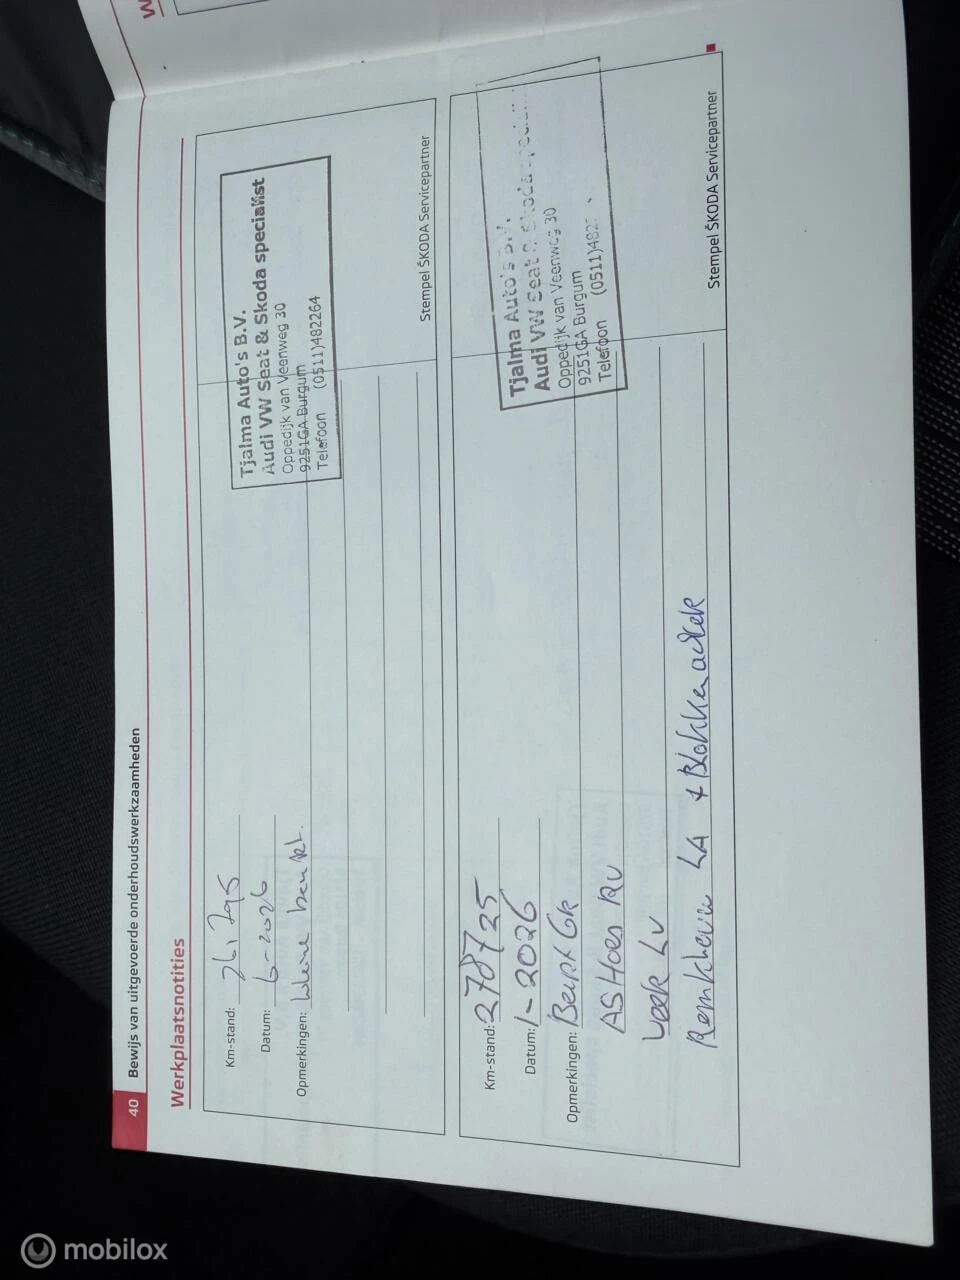 40 Bewijs van uitgevoerde onderhoudswerkzaamheden
Werkplaatsnotities
Km-stand: 261295
Datum: 6-2026
Opmerkingen: kleine beurt.
Tjalma Auto's B.V.
Audi VW Seat & Skoda specialist
Oppedijk van Veenweg 30
9251GA Burgum
Telefoon (0511)482264
Stempel ŠKODA Servicepartner
Km-stand: 278725
Datum: 1-2026
Opmerkingen: Beurt GR
ASHoes RV
Veer LV
Remklauw LA + Blokken achter
Tjalma Auto's B.V.
Audi VW Seat & Skoda specialist
Oppedijk van Veenweg 30
9251GA Burgum
Telefoon (0511)482
Stempel ŠKODA Servicepartner
W
mobilox